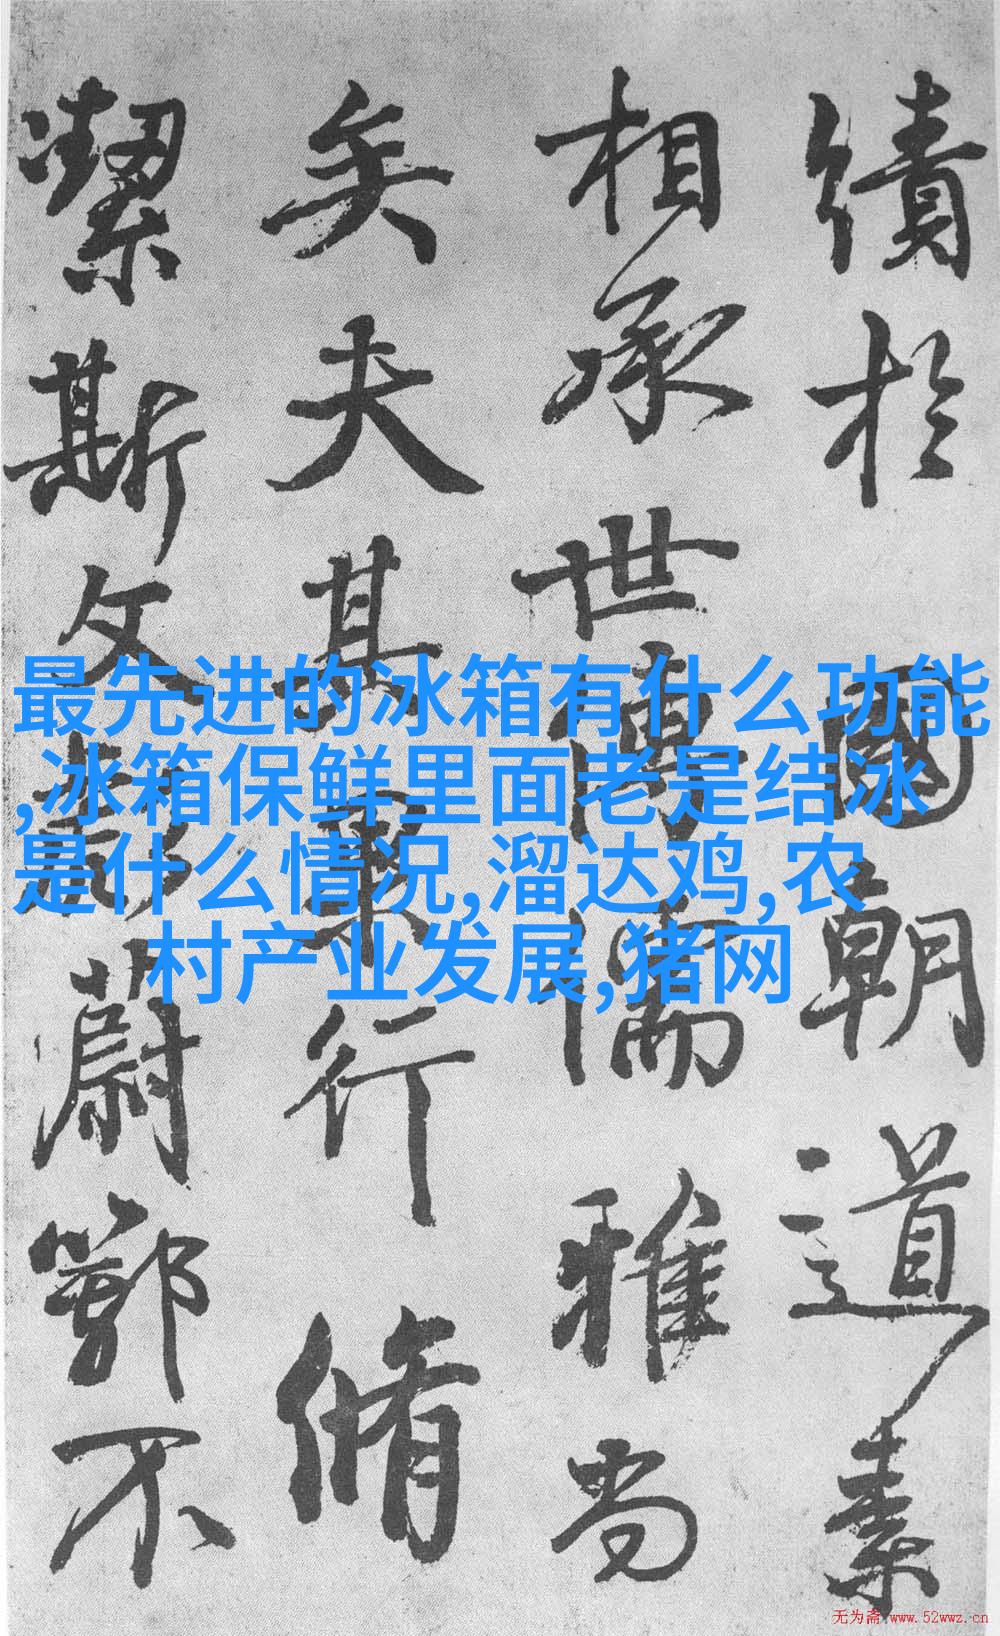 績於國朝道素
相承世傳儒雅尚
矣夫其果行脩
潔斯文彪蔚鄂不
最先进的冰箱有什么功能
,冰箱保鲜里面老是结冰
是什么情况,溜达鸡,农
村产业发展,猪网
无为斋 www.52wwz.cn